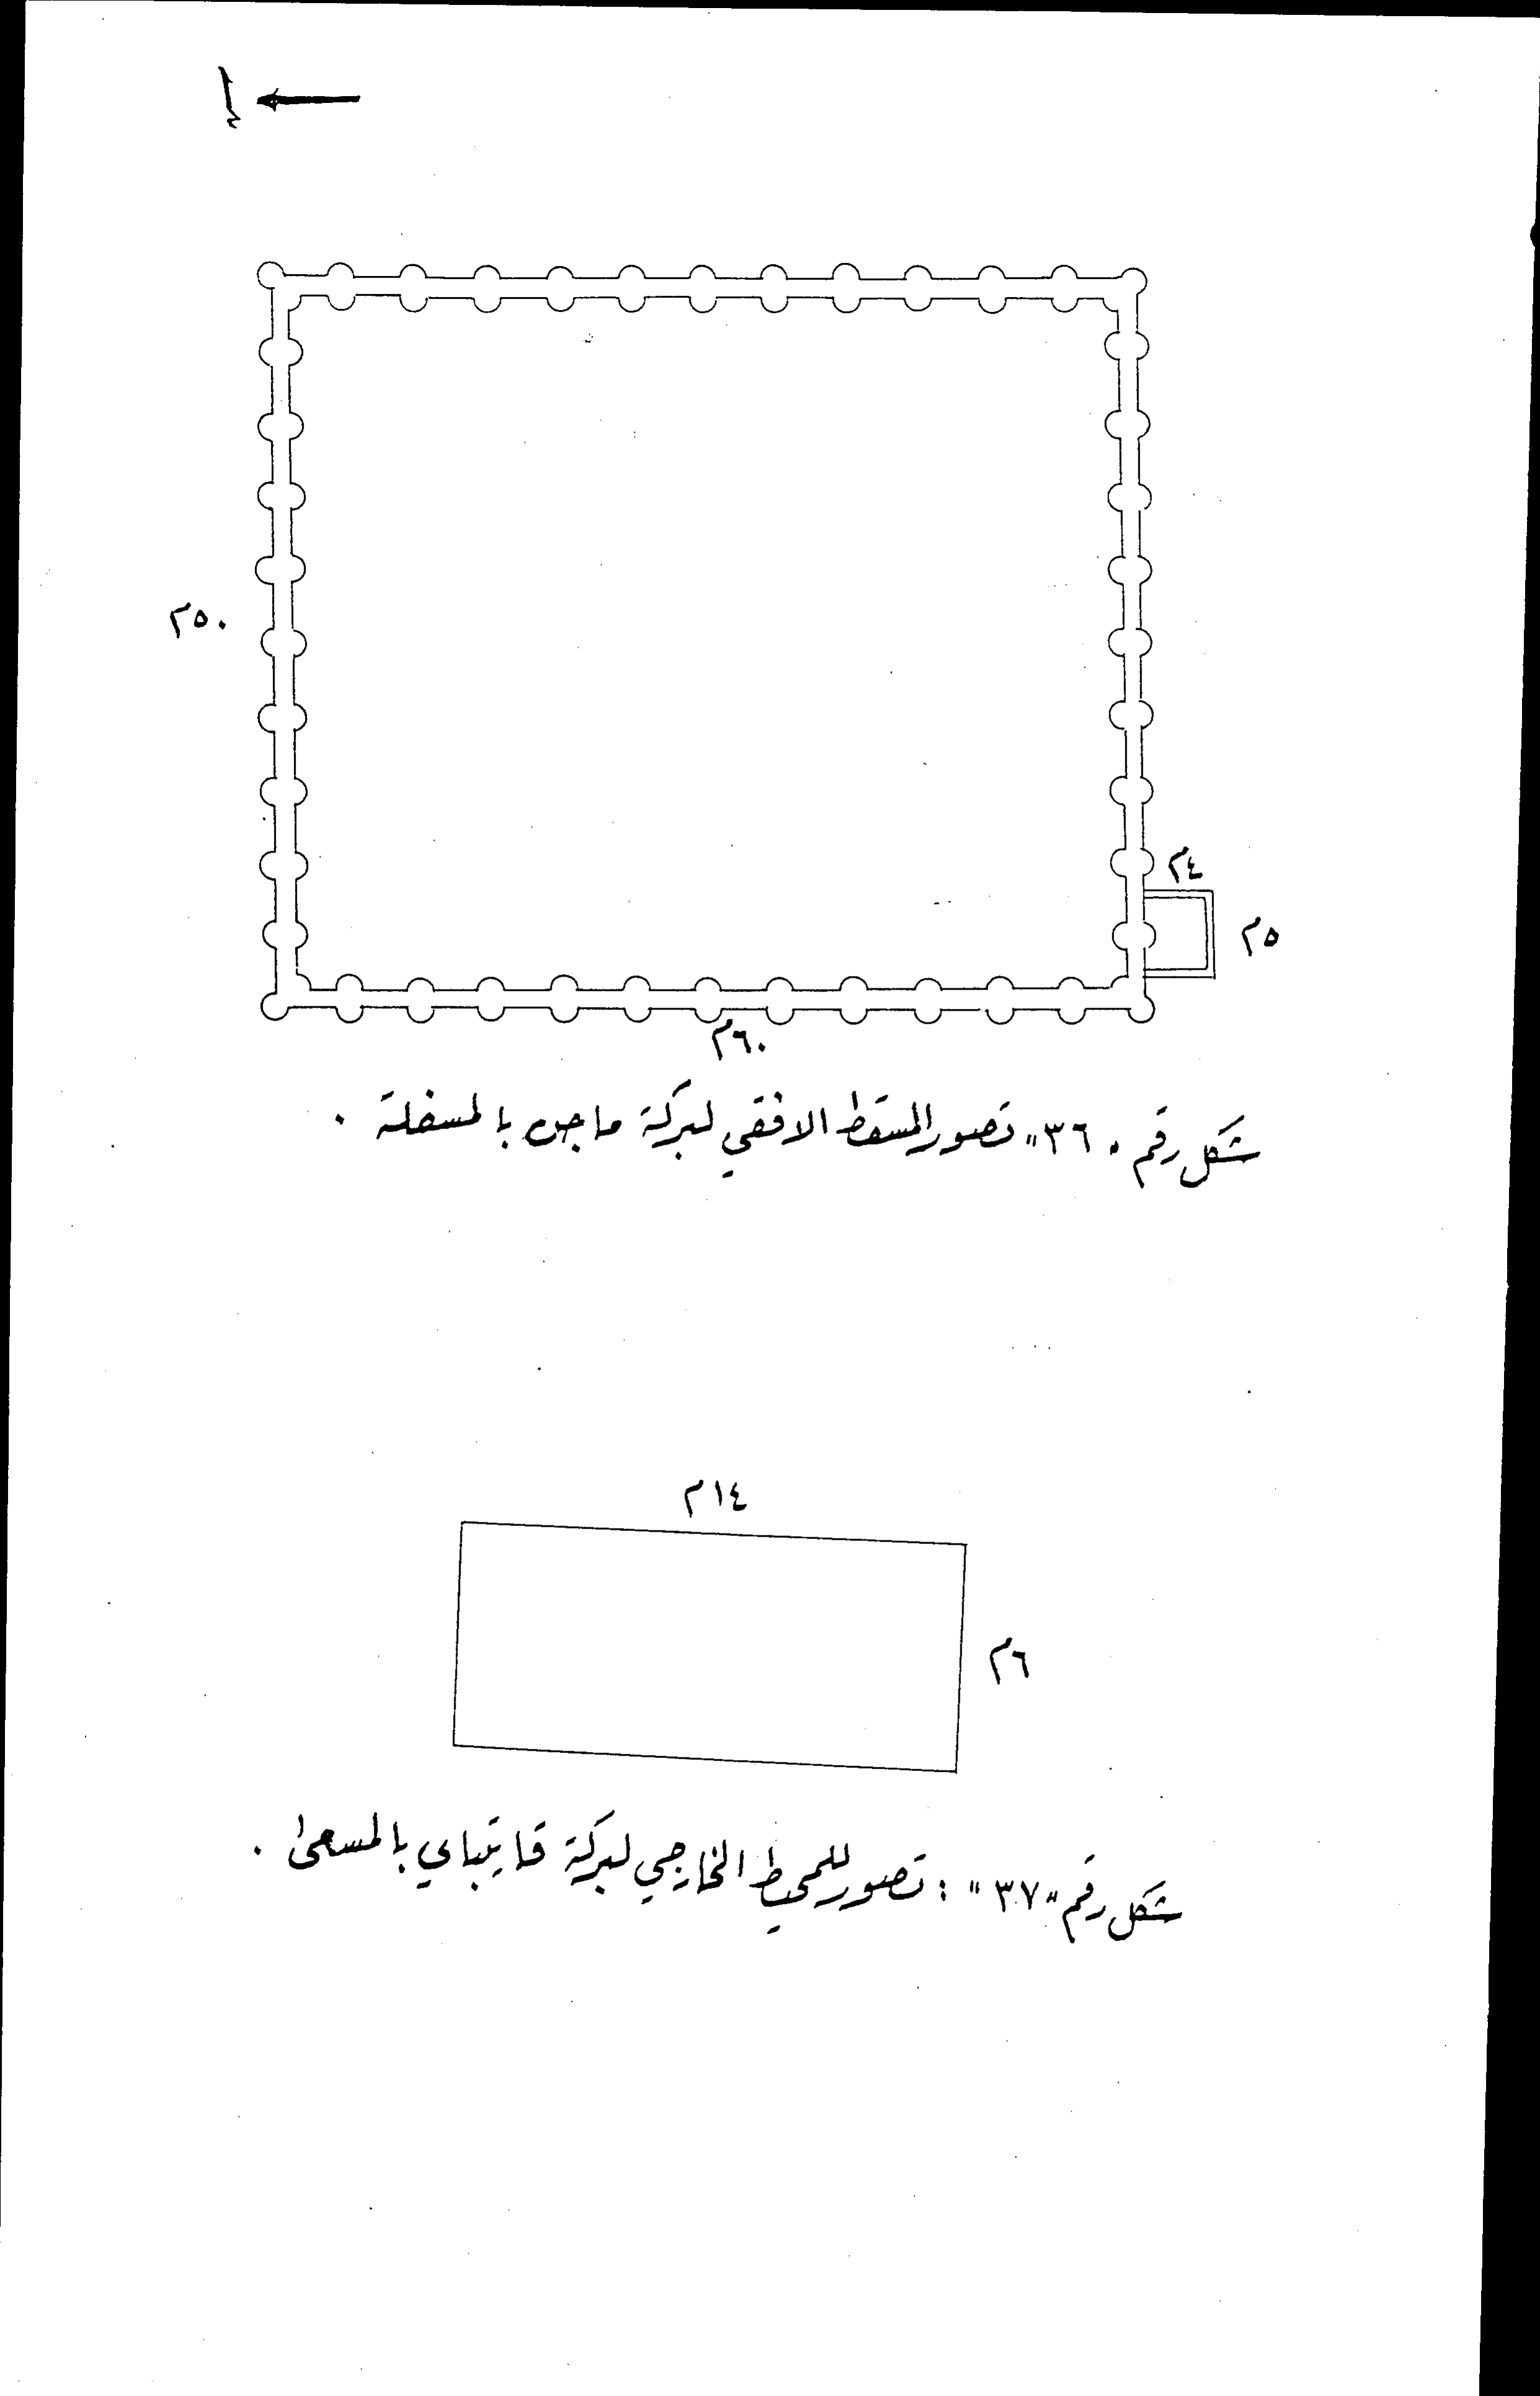 ٥٠م
٤م
٥م
٦٠م
شكل رقم "٣٦" تصور المسقط الافقي لبركة ماجن بالمسفلة .
١٤م
٦م
شكل رقم "٣٧" : تصور للمحيط الخارجي لبركة قايتباي بالمسعى .